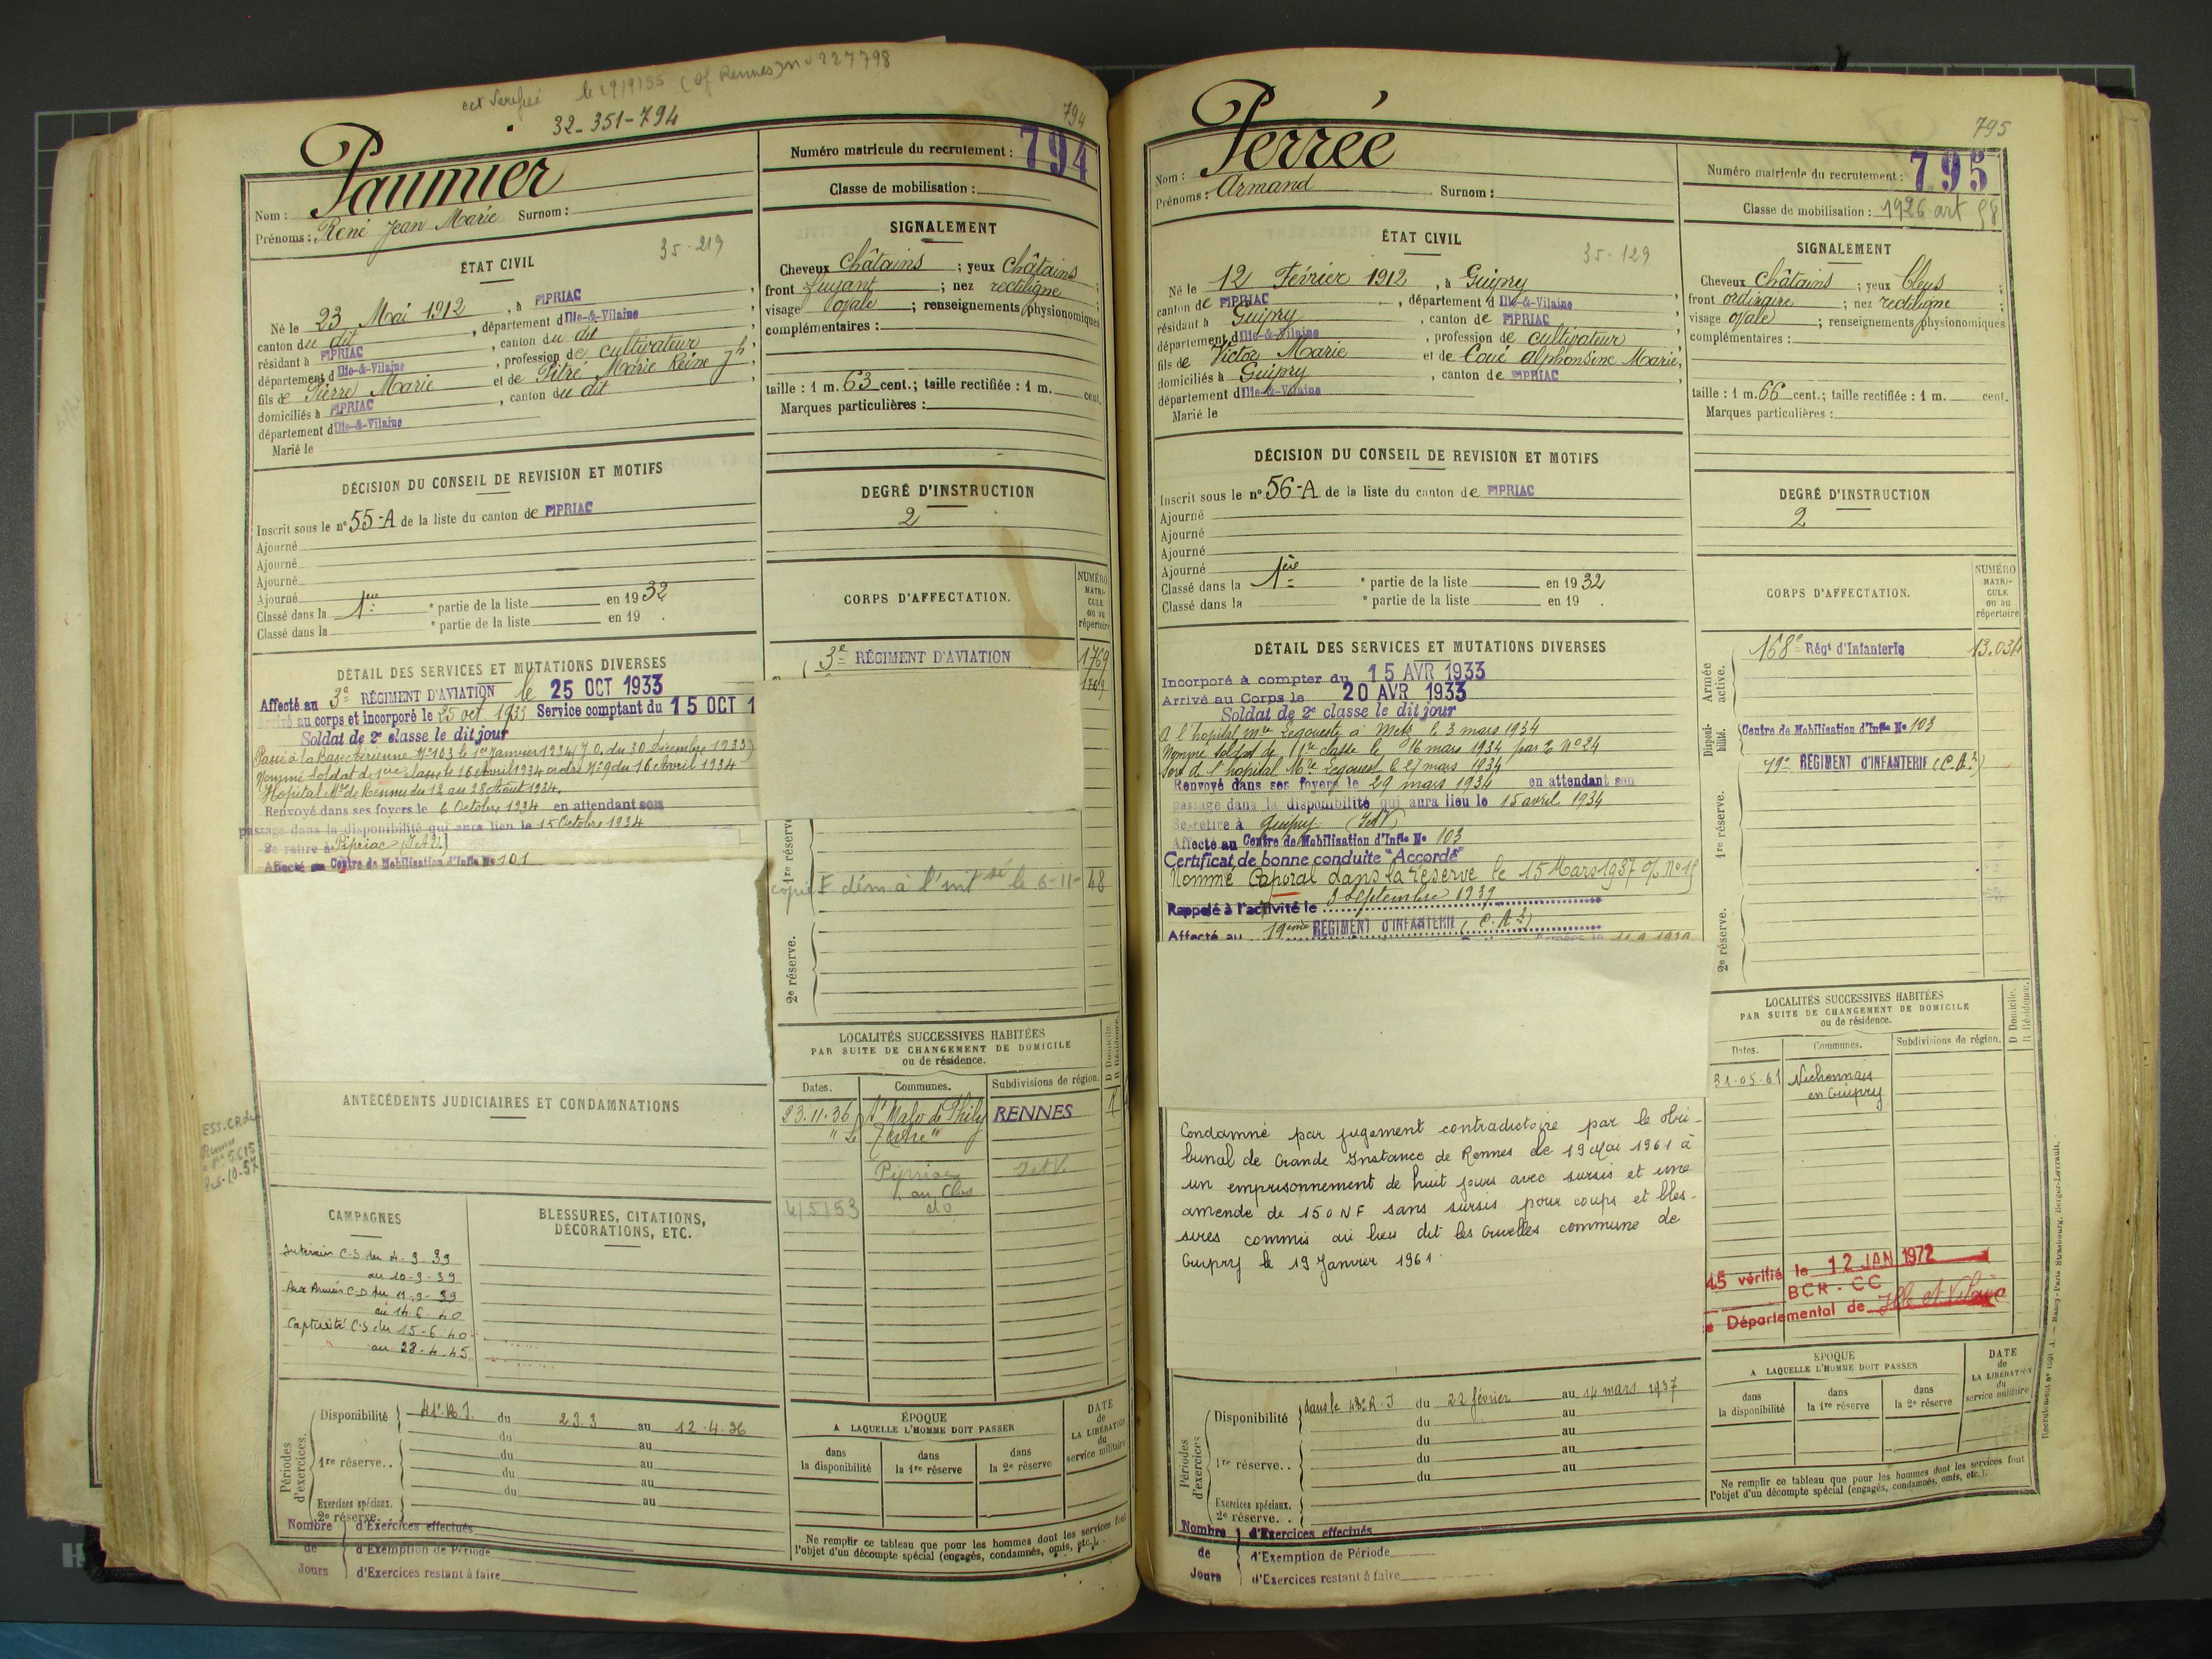 32-351-794
794
Paumier
Nom :
Prénoms : René Jean Marie Surnom :
Numéro matricule du recrutement : 794
Classe de mobilisation :
35-219
ÉTAT CIVIL
Né le 23 Mai 1912, à PIPRIAC
canton du dit, département d'Ille-&-Vilaine
résidant à PIPRIAC, canton du dit
département d'Ille-&-Vilaine, profession de cultivateur
fils de Pierre Marie et de Pitré Marie Reine Jh
domiciliés à PIPRIAC, canton du dit
département d'Ille-&-Vilaine
Marié le
SIGNALEMENT
Cheveux Châtains ; yeux Châtains
front fuyant ; nez rectiligne
visage ovale ; renseignements physionomiques
complémentaires :
taille : 1 m. 63 cent.; taille rectifiée : 1 m. cent.
Marques particulières :
DÉCISION DU CONSEIL DE REVISION ET MOTIFS
Inscrit sous le n° 55-A de la liste du canton de PIPRIAC
Ajourné
Ajourné
Ajourné
Ajourné
Classé dans la 1ère ° partie de la liste en 1932
Classé dans la ° partie de la liste en 19 .
DEGRÉ D'INSTRUCTION
2
CORPS D'AFFECTATION.
NUMÉRO
MATRI-
CULE
ou au
répertoire
3e RÉGIMENT D'AVIATION 1769
1769
DÉTAIL DES SERVICES ET MUTATIONS DIVERSES
Affecté au 3e RÉGIMENT D'AVIATION le 25 OCT 1933
Arrivé au corps et incorporé le 25 oct 1933 Service comptant du 15 OCT 1
Soldat de 2e classe le dit jour
Passé à la Base Aérienne N°103 le 1er Janvier 1934 (J.O. du 30 Décembre 1933)
Nommé Soldat de 1ère classe le 16 Avril 1934 ordre N°9 du 16 Avril 1934
Hopital Mre de Rennes du 12 au 28 Août 1934.
Renvoyé dans ses foyers le 6 Octobre 1934 en attendant son
passage dans la disponibilité qui aura lieu le 15 Octobre 1934
Se retire à Pipriac (I et V.)
Affecté au Centre de Mobilisation d'Infie No 101
1re réserve
copie E dém à l'intsé le 6-11-48
2e réserve.
ANTÉCÉDENTS JUDICIAIRES ET CONDAMNATIONS
LOCALITÉS SUCCESSIVES HABITÉES
PAR SUITE DE CHANGEMENT DE DOMICILE
ou de résidence.
D Domicile.
R Résidence.
Dates. Communes. Subdivisions de région.
23.11.36 St Malo de Phily RENNES R
Pipriac I et V.
au Clos
4/5/53
CAMPAGNES
Intérieur C.S du 4-9-39
au 10-9-39
Aux Armées C.D du 11-9-39
au 14.6.40
Captivité C.S du 15-6-40
au 28.4.45
BLESSURES, CITATIONS,
DÉCORATIONS, ETC.
Périodes d'exercices.
Disponibilité 41e R.I. du 23.3 au 12.4.36
du au
1re réserve.. du au
du au
du au
Exercices spéciaux.
2e réserve.
Nombre de Jours
d'Exercices effectués
d'Exemption de Période
d'Exercices restant à faire
ÉPOQUE
A LAQUELLE L'HOMME DOIT PASSER
dans la disponibilité
dans la 1re réserve
dans la 2e réserve
DATE
de
LA LIBÉRATION
du
service militaire
Ne remplir ce tableau que pour les hommes dont les services font
l'objet d'un décompte spécial (engagés, condamnés, omis, etc.).
795
Perrée
Nom :
Prénoms : Armand Surnom :
Numéro matricule du recrutement : 795
Classe de mobilisation : 1926 art 58
35-129
ÉTAT CIVIL
Né le 12 Février 1912, à Guipry
canton de PIPRIAC, département d'Ille-&-Vilaine
résidant à Guipry, canton de PIPRIAC
département d'Ille-&-Vilaine, profession de cultivateur
fils de Victor Marie et de Coué Alphonsine Marie,
domiciliés à Guipry, canton de PIPRIAC
département d'Ille-&-Vilaine
Marié le
SIGNALEMENT
Cheveux Châtains ; yeux bleus ;
front ordinaire ; nez rectiligne ;
visage ovale ; renseignements physionomiques
complémentaires :
taille : 1 m. 66 cent.; taille rectifiée : 1 m. cent.
Marques particulières :
DÉCISION DU CONSEIL DE REVISION ET MOTIFS
Inscrit sous le n° 56-A de la liste du canton de PIPRIAC
Ajourné
Ajourné
Ajourné
Ajourné
Classé dans la 1ère ° partie de la liste en 1932
Classé dans la ° partie de la liste en 19 .
DEGRÉ D'INSTRUCTION
2
CORPS D'AFFECTATION.
NUMÉRO
MATRI-
CULE
ou au
répertoire
Armée active.
168e Régt d'Infanterie 13.034
Disponibilité.
Centre de Mobilisation d'Infie No 103
1re réserve.
19e RÉGIMENT D'INFANTERIE (C.A.2)
2e réserve.
DÉTAIL DES SERVICES ET MUTATIONS DIVERSES
Incorporé à compter du 15 AVR 1933
Arrivé au Corps le 20 AVR 1933
Soldat de 2e classe le dit jour
A l'hopital mre Legouest à Metz le 3 mars 1934
Nommé soldat de 1re classe le 16 mars 1934 par D. No 24
Sort de l'hopital Mre Legouest le 27 mars 1934
Renvoyé dans ses foyers le 29 mars 1934 en attendant son
passage dans la disponibilité qui aura lieu le 15 avril 1934
Se retire à Guipry (I et V)
Affecté au Centre de Mobilisation d'Infie No 103
Certificat de bonne conduite "Accordé"
Nommé Caporal dans la réserve le 15 Mars 1937
Rappelé à l'activité le 3 Septembre 1939
Affecté au 19ème RÉGIMENT D'INFANTERIE (C.A.2)
Condamné par jugement contradictoire par le tri-
bunal de Grande Instance de Rennes de 19 Mai 1961 à
un emprisonnement de huit jours avec sursis et une
amende de 150 NF sans sursis pour coups et bles-
sures commis au lieu dit les Cruelles commune de
Guipry le 19 Janvier 1961.
LOCALITÉS SUCCESSIVES HABITÉES
PAR SUITE DE CHANGEMENT DE DOMICILE
ou de résidence.
D Domicile.
R Résidence.
Dates. Communes. Subdivisions de région.
31-05-61
en Guipry
vérifié le 12 JAN 1972
BCR - CC
Départemental de Ille et Vilaine
Périodes d'exercices
Disponibilité dans le 48e R.I du 22 février au 14 mars 1937
du au
du au
1re réserve.. du au
du au
Exercices spéciaux.
2e réserve. .
Nombre de Jours
d'Exercices effectués
d'Exemption de Période
d'Exercices restant à faire
ÉPOQUE
A LAQUELLE L'HOMME DOIT PASSER
dans la disponibilité
dans la 1re réserve
dans la 2e réserve
DATE
de
LA LIBÉRATION
du
service militaire
Ne remplir ce tableau que pour les hommes dont les services font
l'objet d'un décompte spécial (engagés, condamnés, omis, etc.).